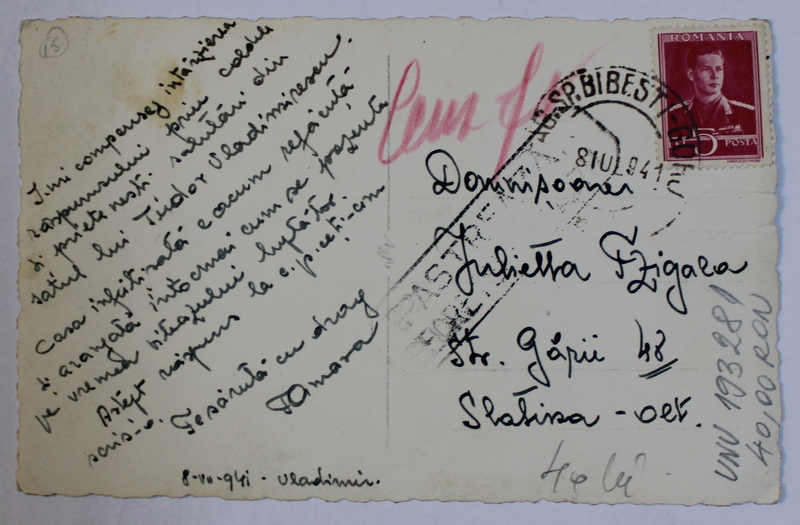 15
Îmi compensez întârzierea
răspunsului prin calde
și prietenești salutări din
satul lui Tudor Vladimirescu.
Casa înfățișată e acum refăcută
și aranjată întocmai cum se prezenta
pe vremea viteazului luptător.
Aștept răspuns la c.p. ceți-am
scris-o.
Te sărută cu drag
Tamara
8-VII-941 - Vladimir.
Cens
ROMANIA
5 POSTA
AG.SP.BIBEȘTI-GORJ
8 IUL 941
PĂSTRE
Domnișoarei
Julietta Tzigara
Str. Gării 48
Slatina - Olt.
40 lei
UNV 193281
40,00 RON